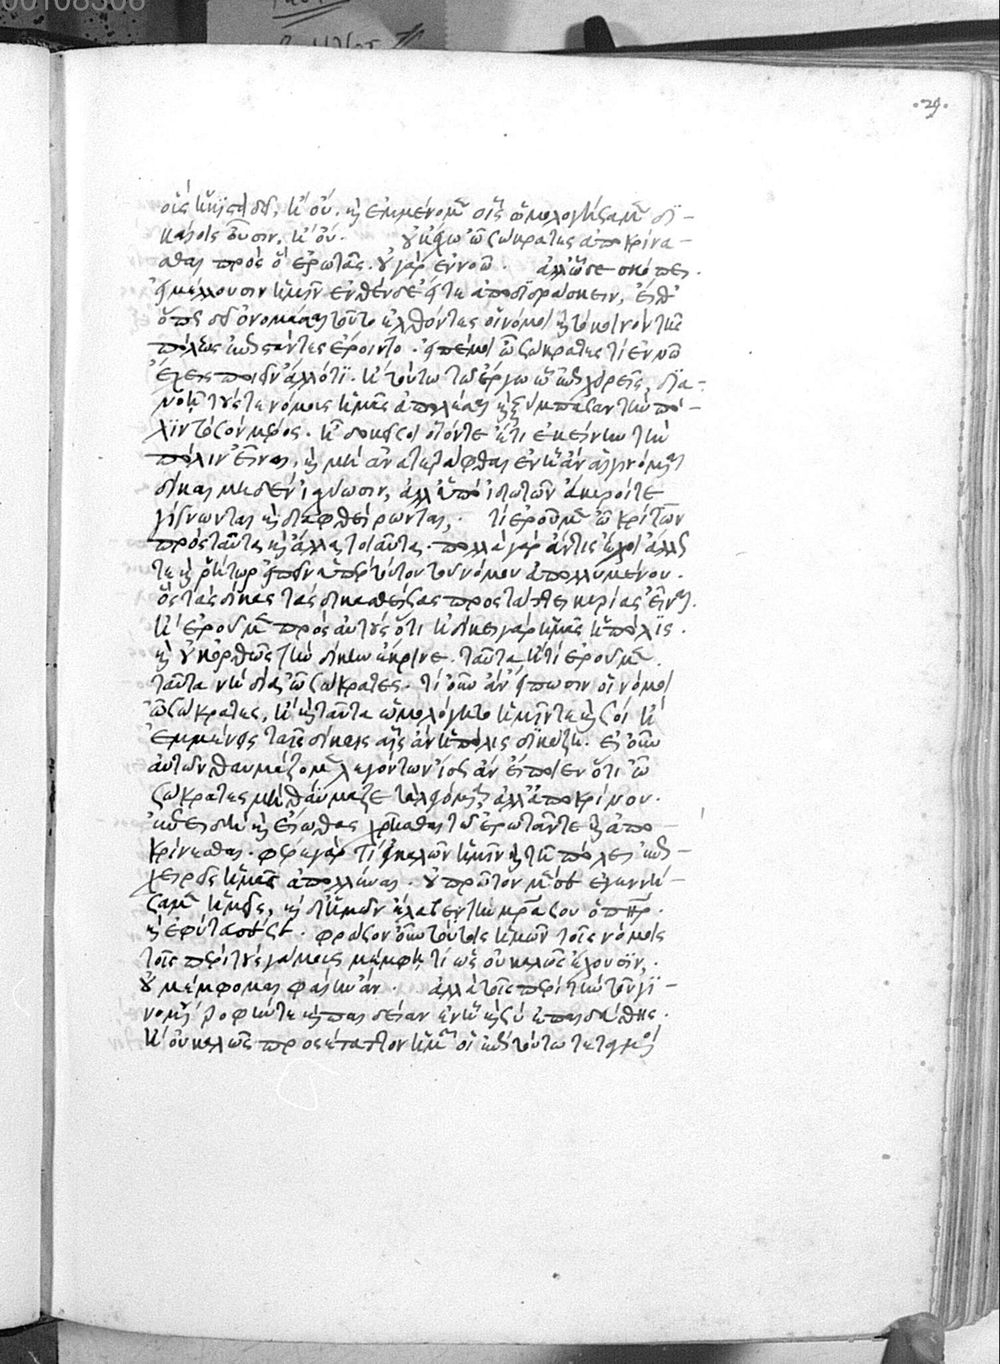 00108306
·29·
οἷς ἥκιστα δεῖ, ἢ οὔ. καὶ ἐμμένομεν οἷς ὡμολογήσαμεν δι-
καίοις οὖσιν, ἢ οὔ. οὐκ ἔχω ὦ σώκρατες ἀποκρίνα-
σθαι πρὸς ὃ ἐρωτᾷς. οὐ γὰρ ἐννοῶ. ἀλλ' ὧδε σκόπει.
εἰ μέλλουσιν ἡμῖν ἐνθένδε εἴτε ἀποδιδράσκειν, εἴθ'
ὅπως δεῖ ὀνομάσαι τοῦτο ἐλθόντες οἱ νόμοι καὶ τὸ κοινὸν τῆς
πόλεως ἐπιστάντες ἔροιντο. εἰπέ μοι ὦ σώκρατες τί ἐν νῷ
ἔχεις ποιεῖν ἄλλό τι. ἢ τούτῳ τῷ ἔργῳ ᾧ ἐπιχειρεῖς, δια-
νοῇ τούς τε νόμους ἡμᾶς ἀπολέσαι καὶ ξύμπασαν τὴν πό-
λιν τὸ σὸν μέρος. ἢ δοκεῖ σοι οἷόν τε ἔτι ἐκείνην τὴν
πόλιν εἶναι, καὶ μὴ ἀνατετράφθαι ἐν ᾗ ἂν αἱ γινόμεναι
δίκαι μηδὲν ἰσχύωσιν, ἀλλ' ὑπὸ ἰδιωτῶν ἄκυροί τε
γίγνωνται καὶ διαφθείρωνται. τί ἐροῦμεν ὦ κρίτων
πρὸς ταῦτα καὶ ἄλλα τοιαῦτα. πολλὰ γὰρ ἄν τις ἔχοι ἄλλως
τε καὶ ῥήτωρ εἰπεῖν ὑπὲρ τούτου τοῦ νόμου ἀπολλυμένου.
ὃς τὰς δίκας τὰς δικασθείσας προστάττει κυρίας εἶναι.
ἢ ἐροῦμεν πρὸς αὐτοὺς ὅτι ἠδίκει γὰρ ἡμᾶς ἡ πόλις.
καὶ οὐκ ὀρθῶς τὴν δίκην ἔκρινε. ταῦτα ἢ τί ἐροῦμεν.
ταῦτα νὴ δία ὦ σώκρατες. τί οὖν ἂν εἴπωσιν οἱ νόμοι
ὦ σώκρατες, ἢ καὶ ταῦτα ὡμολόγητο ἡμῖν τε καὶ σοὶ ἢ
ἐμμένειν ταῖς δίκαις αἷς ἂν ἡ πόλις δικάζῃ. εἰ οὖν
αὐτῶν θαυμάζοιμεν λεγόντων ἴσως ἂν εἴποιεν ὅτι ὦ
σώκρατες μὴ θαύμαζε τὰ λεγόμενα ἀλλ' ἀποκρίνου.
ἐπειδὴ καὶ εἴωθας χρῆσθαι τῷ ἐρωτᾶν τε καὶ ἀπο-
κρίνεσθαι. φέρε γὰρ τί ἐγκαλῶν ἡμῖν καὶ τῇ πόλει ἐπι-
χειρεῖς ἡμᾶς ἀπολλύναι. οὐ πρῶτον μέν σε ἐγεννή-
σαμεν ἡμεῖς, καὶ δι' ἡμῶν ἔλαβεν τὴν μητέρα σου ὁ πατήρ.
καὶ ἐφύτευσέ σε. φράσον οὖν τούτοις ἡμῶν τοῖς νόμοις
τοῖς περὶ τοὺς γάμους μέμφῃ τι ὡς οὐ καλῶς ἔχουσιν.
οὐ μέμφομαι φαίην ἄν. ἀλλὰ τοῖς περὶ τὴν τοῦ γι-
νομένου τροφήν τε καὶ παιδείαν ἐν ᾗ καὶ σὺ ἐπαιδεύθης.
ἢ οὐ καλῶς προσέταττον ἡμῶν οἱ ἐπὶ τούτῳ τεταγμένοι